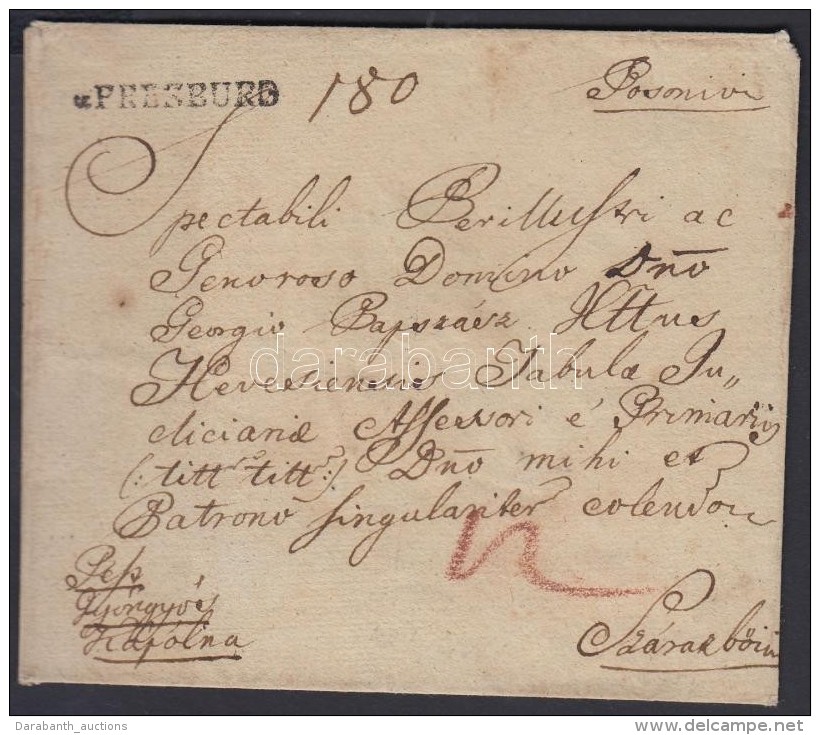 v. PRESBURG 180 Posonivi
Spectabili Perillustri ac
Generoso Domino Dño
Georgio Bapszász
Hevesiensis Tabulæ Ju„
diciariæ Assessori è Primariis
(: titt titt :) Dño mihi et
Patrono singulariter colendo
Pest
Gyöngyös
Kápolna
Szárazbő
darabanth
Darabanth_auctions
postzegels.delcampe.net